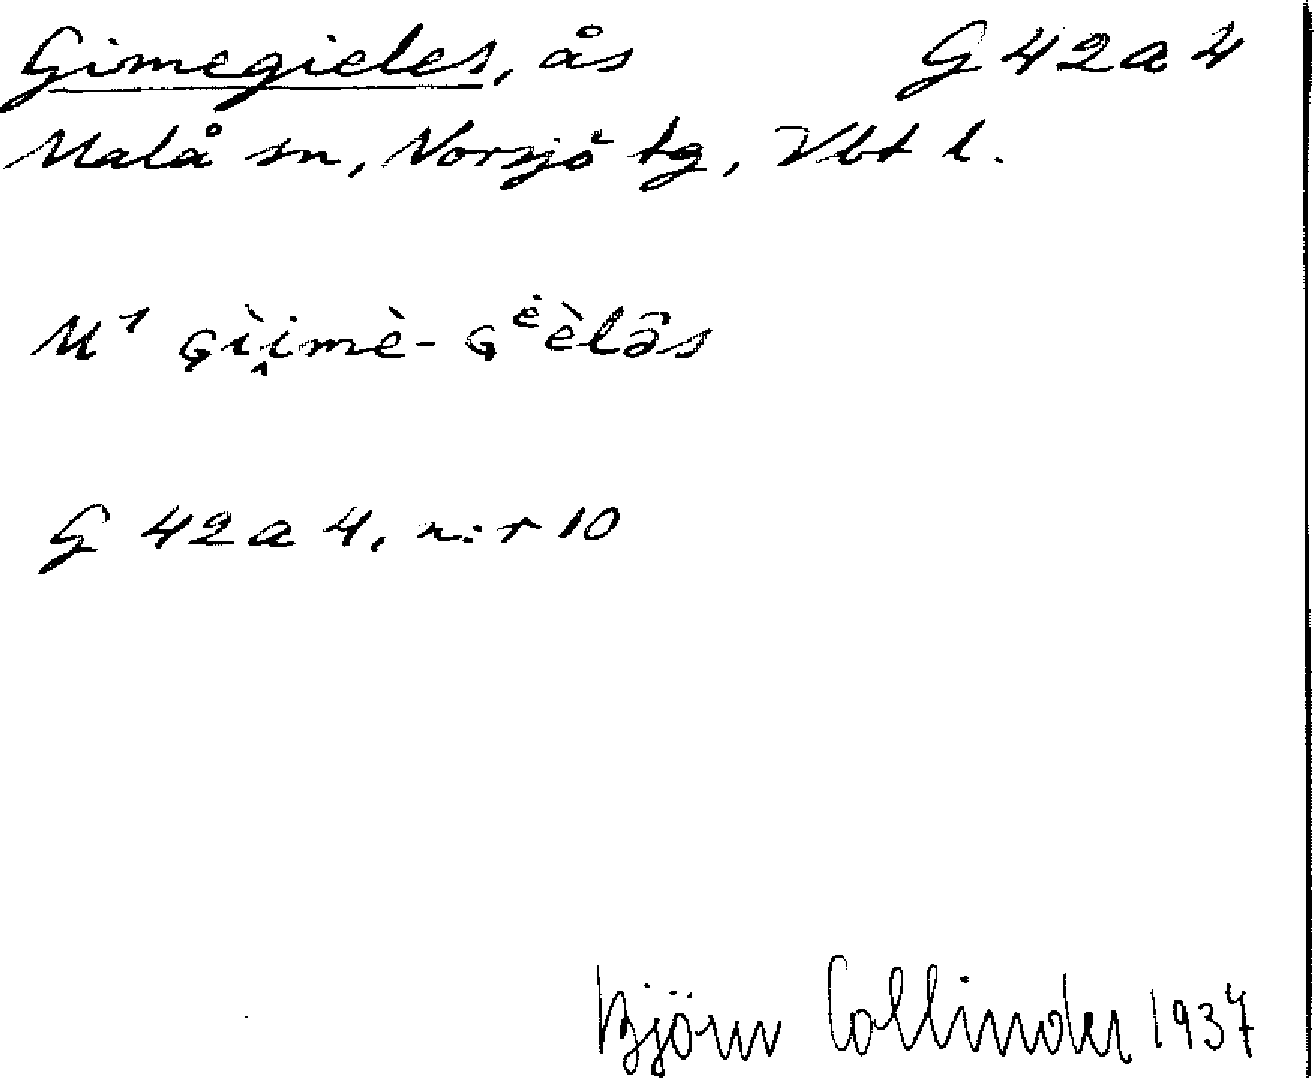 Gimegieles, ås G 42 a 4
Malå sn, Norsjö tg, Vbt l.
M¹ G̣ìi̭mè-Gᵉ̀èlə̑s
G 42 a 4, n:r 10
Björn Collinder 1937